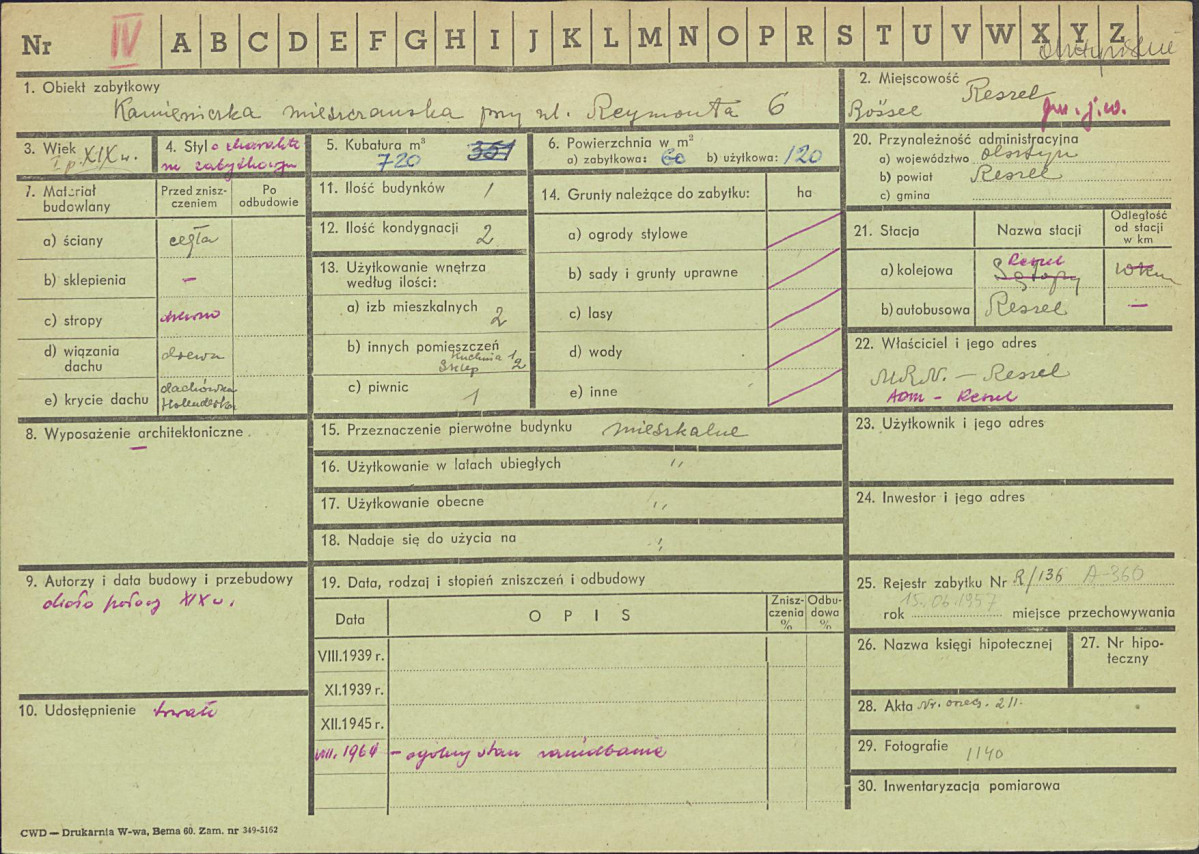 Nr IV A B C D E F G H I J K L M N O P R S T U V W X Y Z
1. Obiekt zabytkowy
Kamieniczka mieszczańska przy ul. Reymonta 6
2. Miejscowość
Reszel
Rössel
3. Wiek
I p. XIX w.
4. Styl o charakte
rze zabytkowym
5. Kubatura m³
720 351
6. Powierzchnia w m²
a) zabytkowa: 60 b) użytkowa: 120
7. Materiał
budowlany
Przed znisz-
czeniem
Po
odbudowie
a) ściany cegła
b) sklepienia —
c) stropy drewno
d) wiązania
dachu
drewn
e) krycie dachu
dachówka
Holenderka
8. Wyposażenie architektoniczne
—
9. Autorzy i data budowy i przebudowy
około połowy XIX w.
10. Udostępnienie trwałe
11. Ilość budynków 1
12. Ilość kondygnacji 2
13. Użytkowanie wnętrza
według ilości:
a) izb mieszkalnych 2
b) innych pomieszczeń
Kuchnia 1
Sklep 2
c) piwnic 1
14. Grunty należące do zabytku: ha
a) ogrody stylowe
b) sady i grunty uprawne
c) lasy
d) wody
e) inne
15. Przeznaczenie pierwotne budynku mieszkalne
16. Użytkowanie w latach ubiegłych "
17. Użytkowanie obecne "
18. Nadaje się do użycia na "
19. Data, rodzaj i stopień zniszczeń i odbudowy
Data
O P I S
Znisz-
czenia
%
Odbu-
dowa
%
VIII.1939 r.
XI.1939 r.
XII.1945 r.
VIII. 1964 — ogólny stan zaniedbanie
20. Przynależność administracyjna
a) województwo Olsztyn
b) powiat Reszel
c) gmina
21. Stacja
Nazwa stacji
Odległość
od stacji
w km
a) kolejowa Reszel
b) autobusowa Reszel —
22. Właściciel i jego adres
M.R.N. — Reszel
ADM — Reszel
23. Użytkownik i jego adres
24. Inwestor i jego adres
25. Rejestr zabytku Nr R/136 A-360
15.06.1957
rok miejsce przechowywania
26. Nazwa księgi hipotecznej
27. Nr hipo-
teczny
28. Akta
29. Fotografie 1140
30. Inwentaryzacja pomiarowa
CWD — Drukarnia W-wa, Bema 60. Zam. nr 349-5162